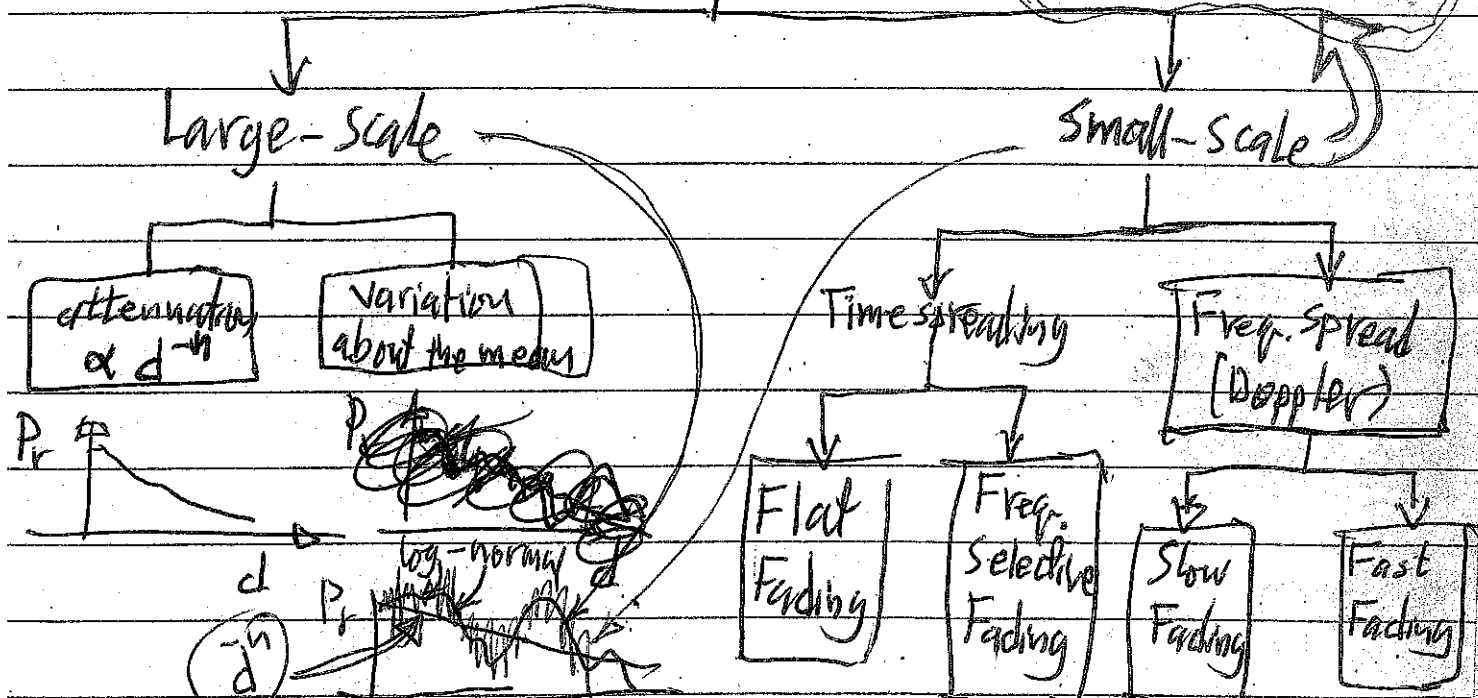 Large-scale
Small-scale
attenuation
α d^-n
variation
about the mean
Time spreading
Freq. spread
(Doppler)
Pr
d
Pr
d
Flat
Fading
Freq.
Selective
Fading
Slow
Fading
Fast
Fading
log-normal
Pr
d^-n